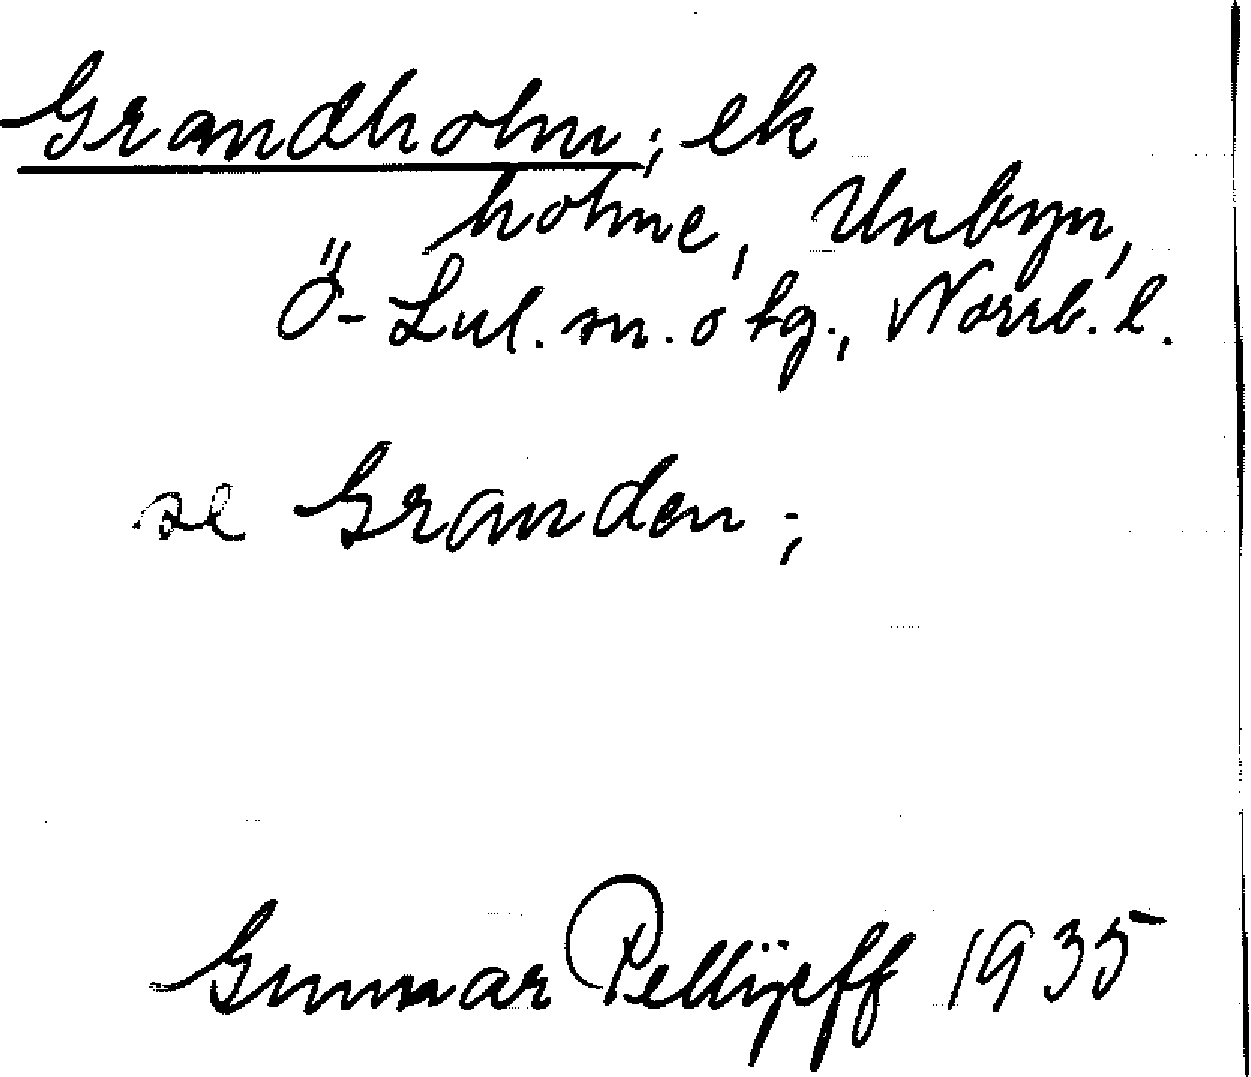 Grandholm; ek
holme, Unbyn,
Ö-Lul. sn. o tg., Norrb. l.
se Granden;
Gunnar Pellijeff 1935